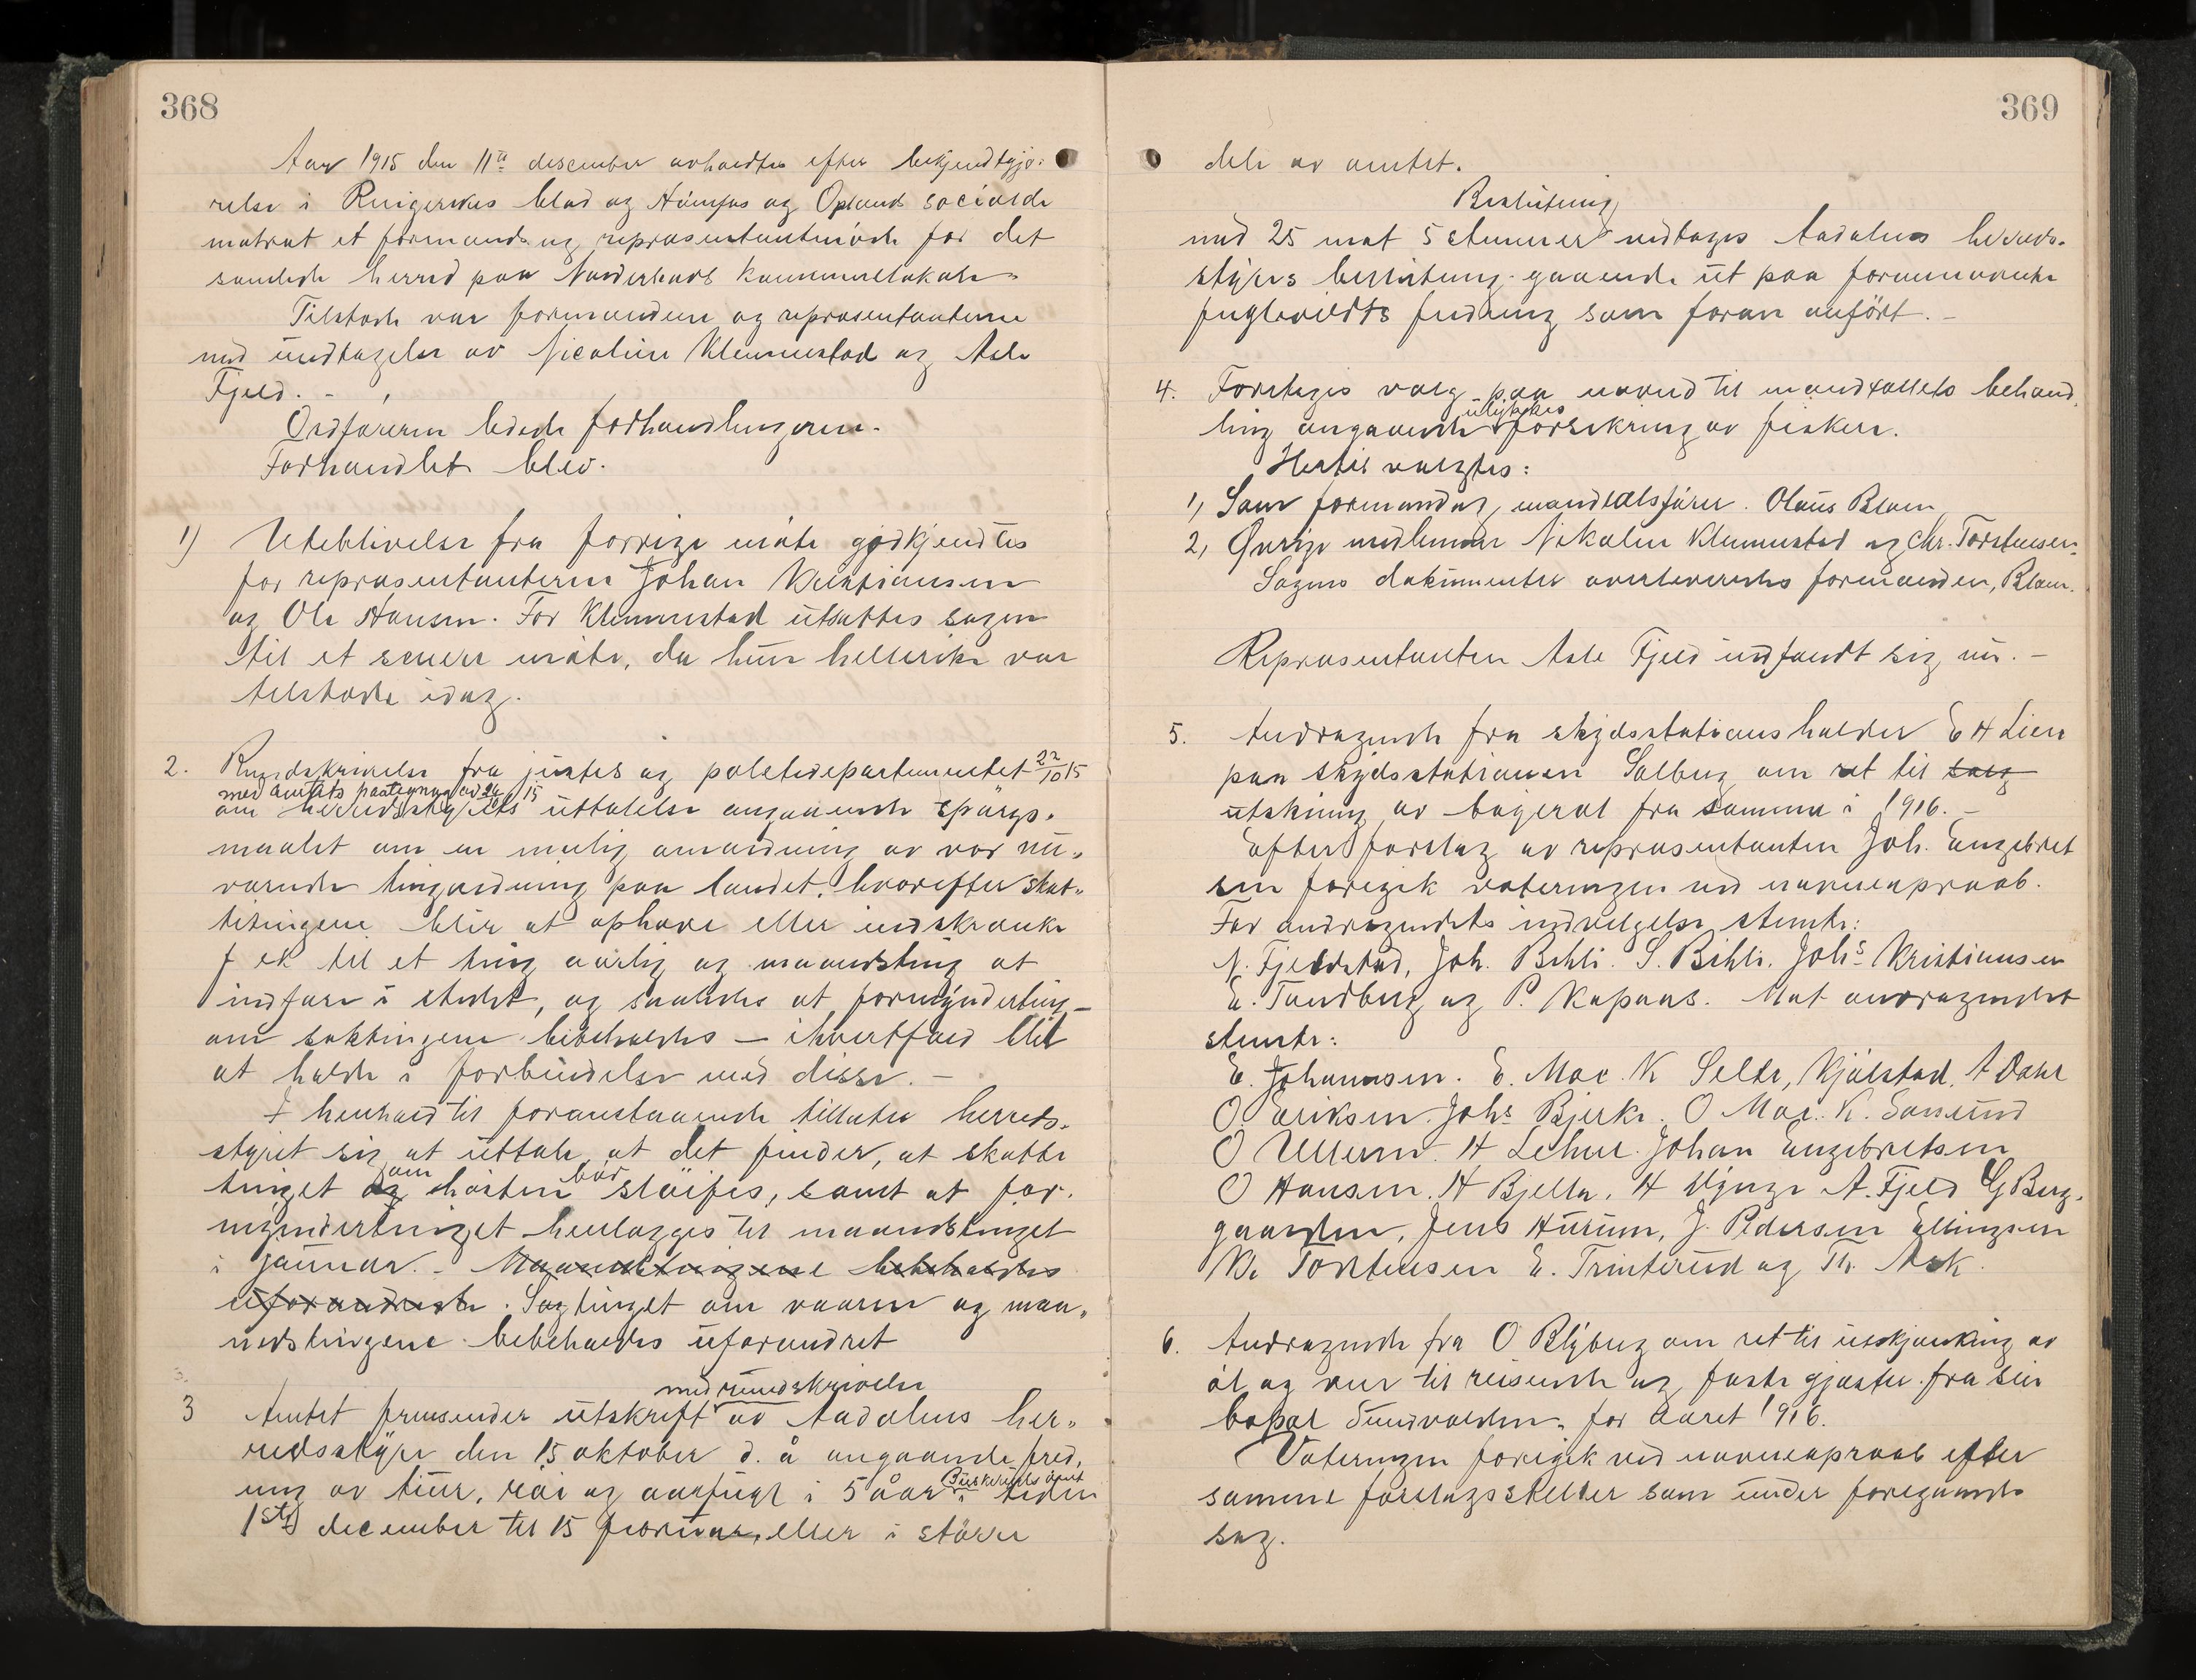 368
Aar 1915 den 11te desember avholdtes efter bekjendtgjø-
relse i Ringerikes blad og Hønefos og Oplands socialde
mokrat et formands og representantmöte for det
samlede herred paa Norderhovs kommunelokale.
Tilstede var formanden og representanterne
med undtagelse av Nicoline Klemmetsad og Asle
Fjeld. -
Ordføreren ledede forhandlingerne.
Forhandlet blev.
1) Uteblivelse fra forrige möte godkjendtes
for representanterne Johan Kristiansen
og Ole Hansen. For Klemmetsad utsattes sagen
til et senere möte, da hun hellerikke var
tilstede idag.
2. Rundskrivelse fra justis og politidepartementet 22/10 15
med amtets paategning av 26/10 15
om herredsstyrets uttalelse angaaende spörgs-
maalet om en mulig omordning av vor nu-
værende tingordning paa landet, hvorefter skat-
tetingene blir at ophæve eller indskrænke
f ek til et ting aarlig og maanedsting at
indføre i stedet, og saaledes at formynderting-
om saktingene bibeholdes — ihvertfald blir
at holde i forbindelse med disse. -
I henhold til foranstaaende tillater herreds-
styret sig at uttale at det finder, at skatte
tinget om hösten bör slöifes, samt at for-
myndertinget henlægges til maanedstinget
i januar. - Maanedstingene bebeholdes
uforandrede. Sagtinget om vaaren og maa-
nedstingene bebeholdes uforandret
3 Amtet fremsender utskrift med rundskrivelse av Aadalens her-
redsstyre den 15 oktober d. å angaaende fred-
ning av tiur, röi og aarfugl i 5 åar i Buskeruds amt tiden
1ste december til 15 februar, eller i större
369
dele av amtet.
Beslutning
med 25 mot 5 stemmer vedtages Aadalens herreds-
styres beslutning gaaende ut paa forannævnte
fuglevildts fredning som foran anfört. -
4. Foretoges valg paa nævnd til mandtallets behand
ling angaaende ulykkesforsikring av fiskere.
Hertil valgtes:
1, Som formand og mandtalsförer. Olaus Blom
2, Övrige medlemmer Nikoline Klemmetsad og Chr. Torstensen.
Sagens dokumenter overleveredes formanden, Blom.
Representanten Asle Fjeld indfandt sig nu. -
5. Andragende fra skydsstationsholder E H Lien
paa skydsstationen Solberg om ret til salg
utskjænkning av bayerøl fra samme i 1916. -
Efter forslag av representanten Joh. Engebret
sen foregik voteringen ved navneopraab.
For andragendets indvilgelse stemte:
N. Fjeldstad, Joh. Bihli. S. Bihli, Johs Kristiansen
E. Tandberg og P. Kopaas. Mot andragendet
stemte:
E. Johannesen. E. Moe. K Selte, Kjölstad, A Dahl
O. Eriksen. Johs Bjerke. O Moe. K. Sørsund
O Ullern. H Lehne. Johan Engebretsen
O Hansen. H Bjella. H Mynge A. Fjeld G Berg-
gaarden, Jens Hurum, J. Pedersen Ellingsen
Kr. Torstensen E. Trinterud og Th. Ask.
6. Andragende fra O Blyberg om ret til utskjænking av
öl og vin til reisende og faste gjæster fra sin
bopæl Sundvolden. for aaret 1916.
Voteringen foregik ved navneopraab efter
samme forslagsstiller som under foregaaende
sag.